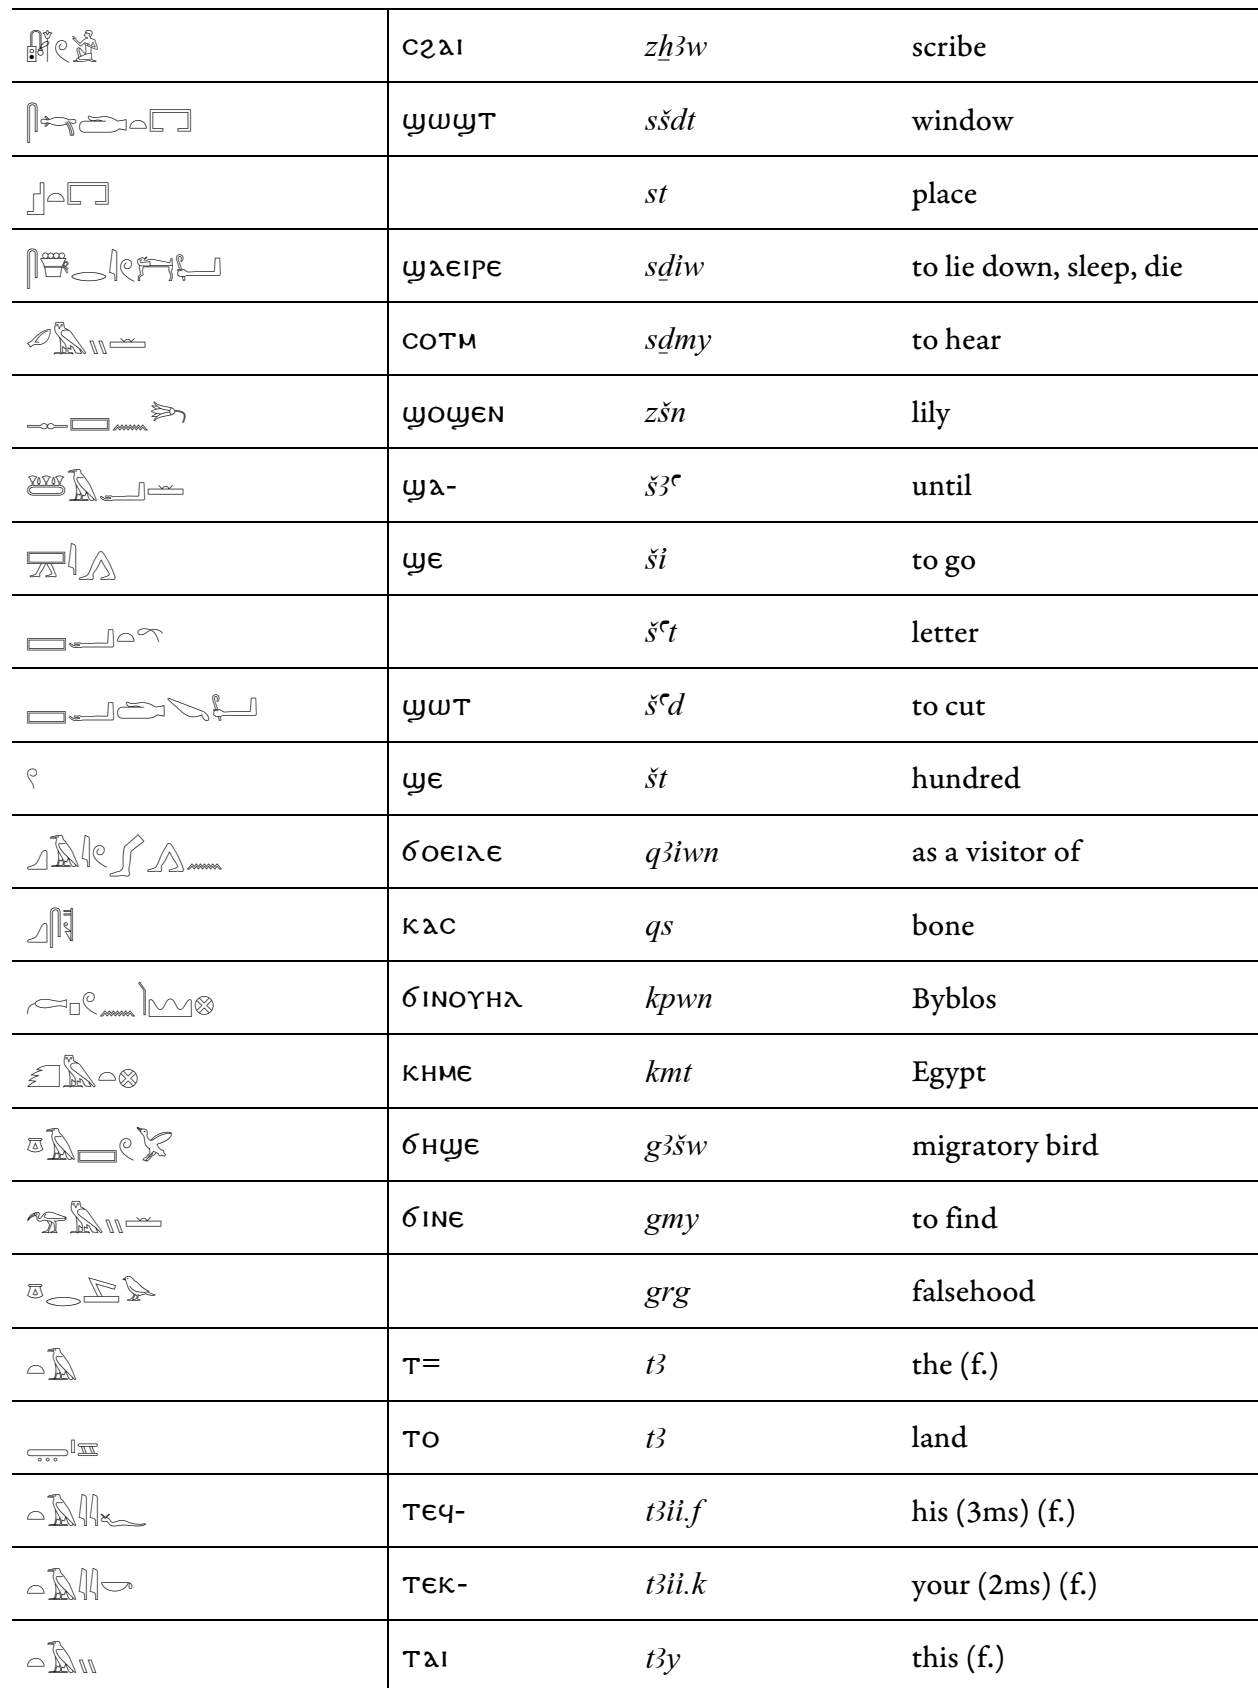 ⲥϩⲁⲓ zẖꜣw scribe
ϣⲱϣⲧ sšdt window
𓊨𓏏𓉐 st place
ϣⲁⲉⲓⲣⲉ sḏi҆w to lie down, sleep, die
𓄔𓅓𓏭𓏛 ⲥⲟⲧⲙ sḏmy to hear
𓊃𓈙𓈖𓆸 ϣⲟϣⲉⲛ zšn lily
𓆷𓄿𓂝𓏛 ϣⲁ- šꜣꜥ until
𓈛𓇋𓂻 ϣⲉ ši҆ to go
šꜥt letter
𓈙𓂝𓂧𓌪𓂡 ϣⲱⲧ šꜥd to cut
𓍢 ϣⲉ št hundred
𓈎𓄿𓇋𓏲𓃀𓂻𓈖 ϭⲟⲉⲓⲗⲉ qꜣi҆wn as a visitor of
ⲕⲁⲥ qs bone
ϭⲓⲛⲟⲩⲏⲗ kpwn Byblos
𓆎𓅓𓏏𓊖 ⲕⲏⲙⲉ kmt Egypt
ϭⲏϣⲉ gꜣšw migratory bird
𓅠𓅓𓏭𓏛 ϭⲓⲛⲉ gmy to find
grg falsehood
𓏏𓄿 ⲧ= tꜣ the (f.)
ⲧⲟ tꜣ land
𓏏𓄿𓇋𓇋𓆑 ⲧⲉϥ- tꜣi҆i҆.f his (3ms) (f.)
𓏏𓄿𓇋𓇋𓎡 ⲧⲉⲕ- tꜣi҆i҆.k your (2ms) (f.)
𓏏𓄿𓏭 ⲧⲁⲓ tꜣy this (f.)